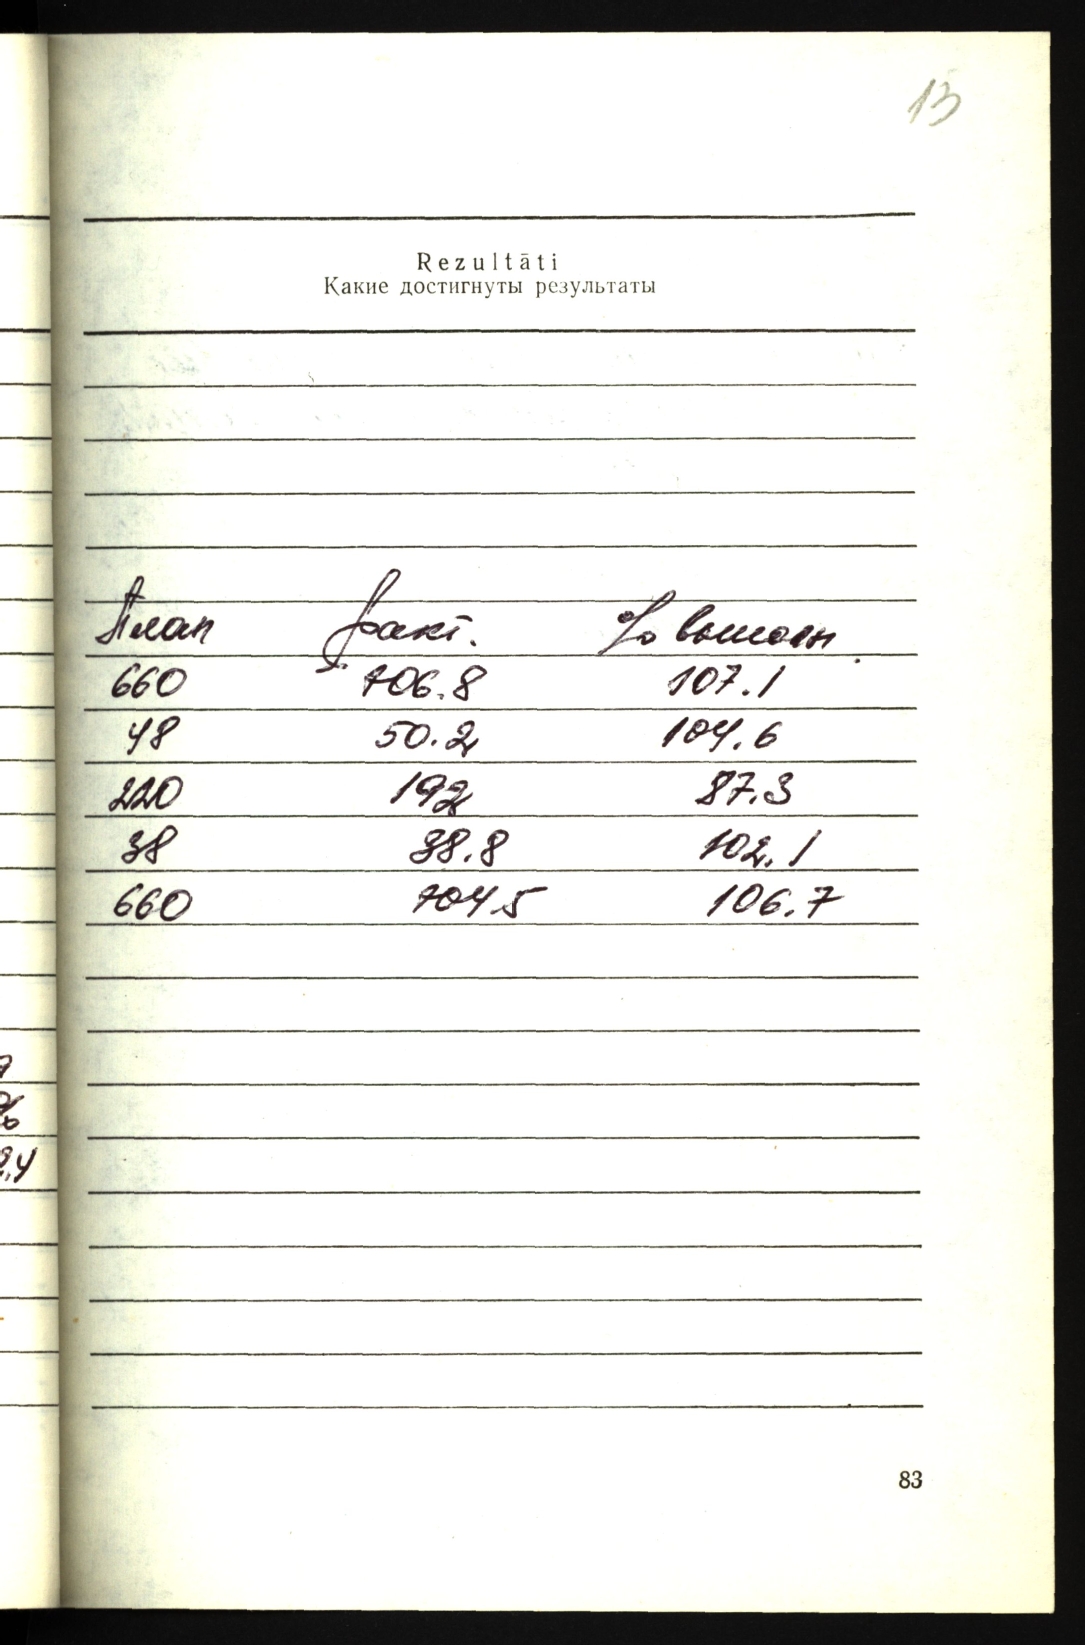 13
Rezultāti
Какие достигнуты результаты
План факт. % выполн.
660 706.8 107.1
48 50.2 104.6
220 192 87.3
38 38.8 102.1
660 704.5 106.7
%
2.4
83